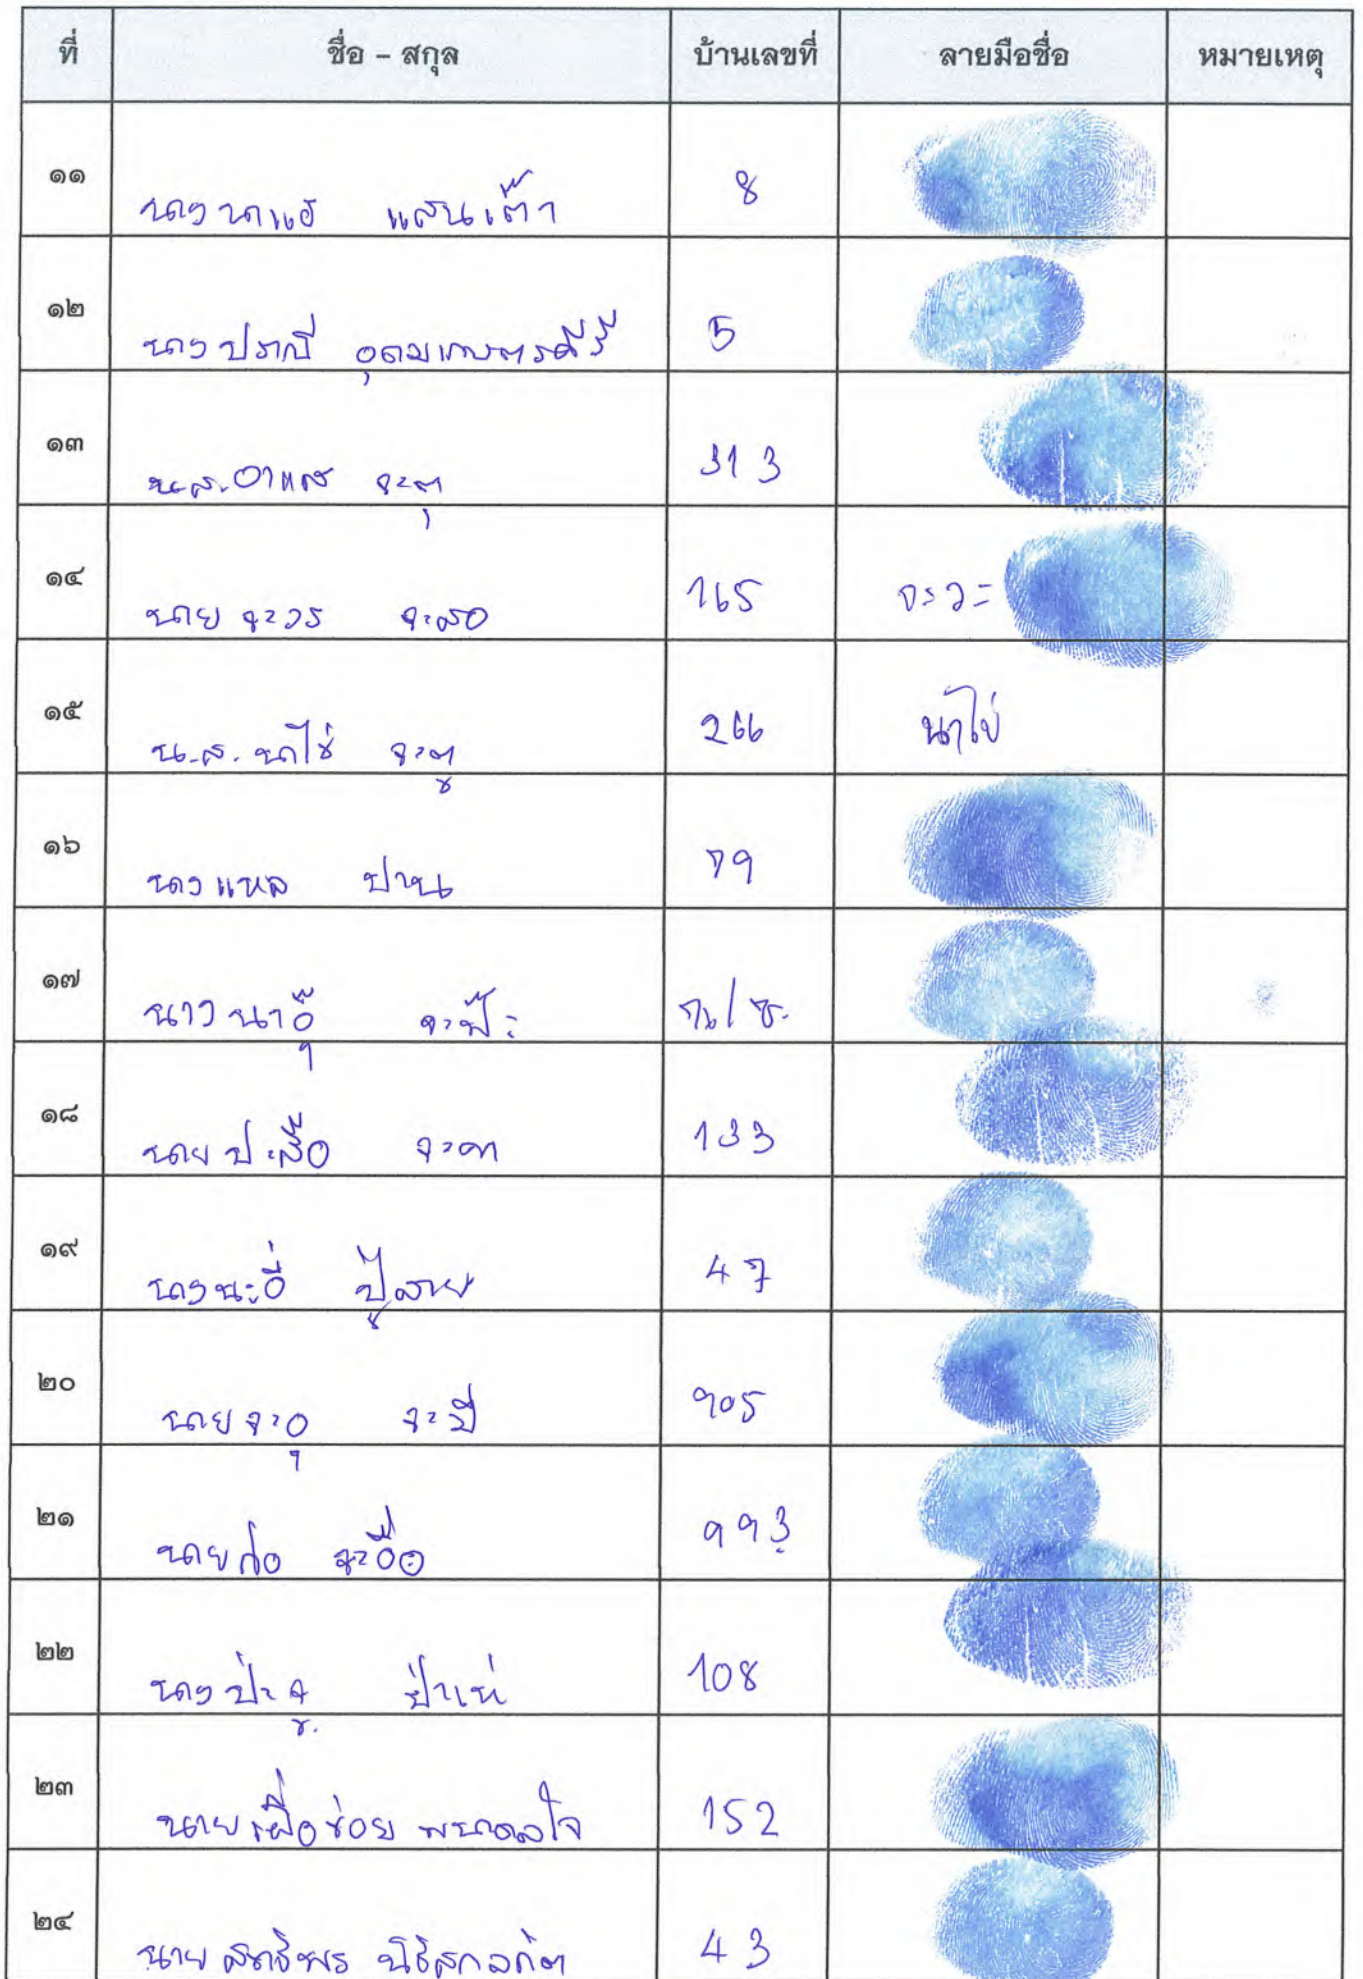 ที่ ชื่อ – สกุล บ้านเลขที่ ลายมือชื่อ หมายเหตุ
๑๑ นางนาแฮ แสนเต๊า 8
๑๒ นางปราณี อุดมเกษตรคีรี 5
๑๓ น.ส.อาแส จะตุ 313
๑๔ นาย จะวร จะสอ 165 จะวะ
๑๕ น.ส. นาไข่ จะตู 266 นาไข่
๑๖ นาง แหล ปาน 79
๑๗ นาง นาอุ๊ จะฟ๊ะ
๑๘ นาย ปะสื้อ จะคา 133
๑๙ นางนะอื่ ปู่สาย 47
๒๐ นาย จะอุ จะปี 105
๒๑ นาย ก่อ จะอื้อ 113
๒๒ นาง ป่าจู ป่าเห่ 108
๒๓ นาย 152
๒๔ นาย 43